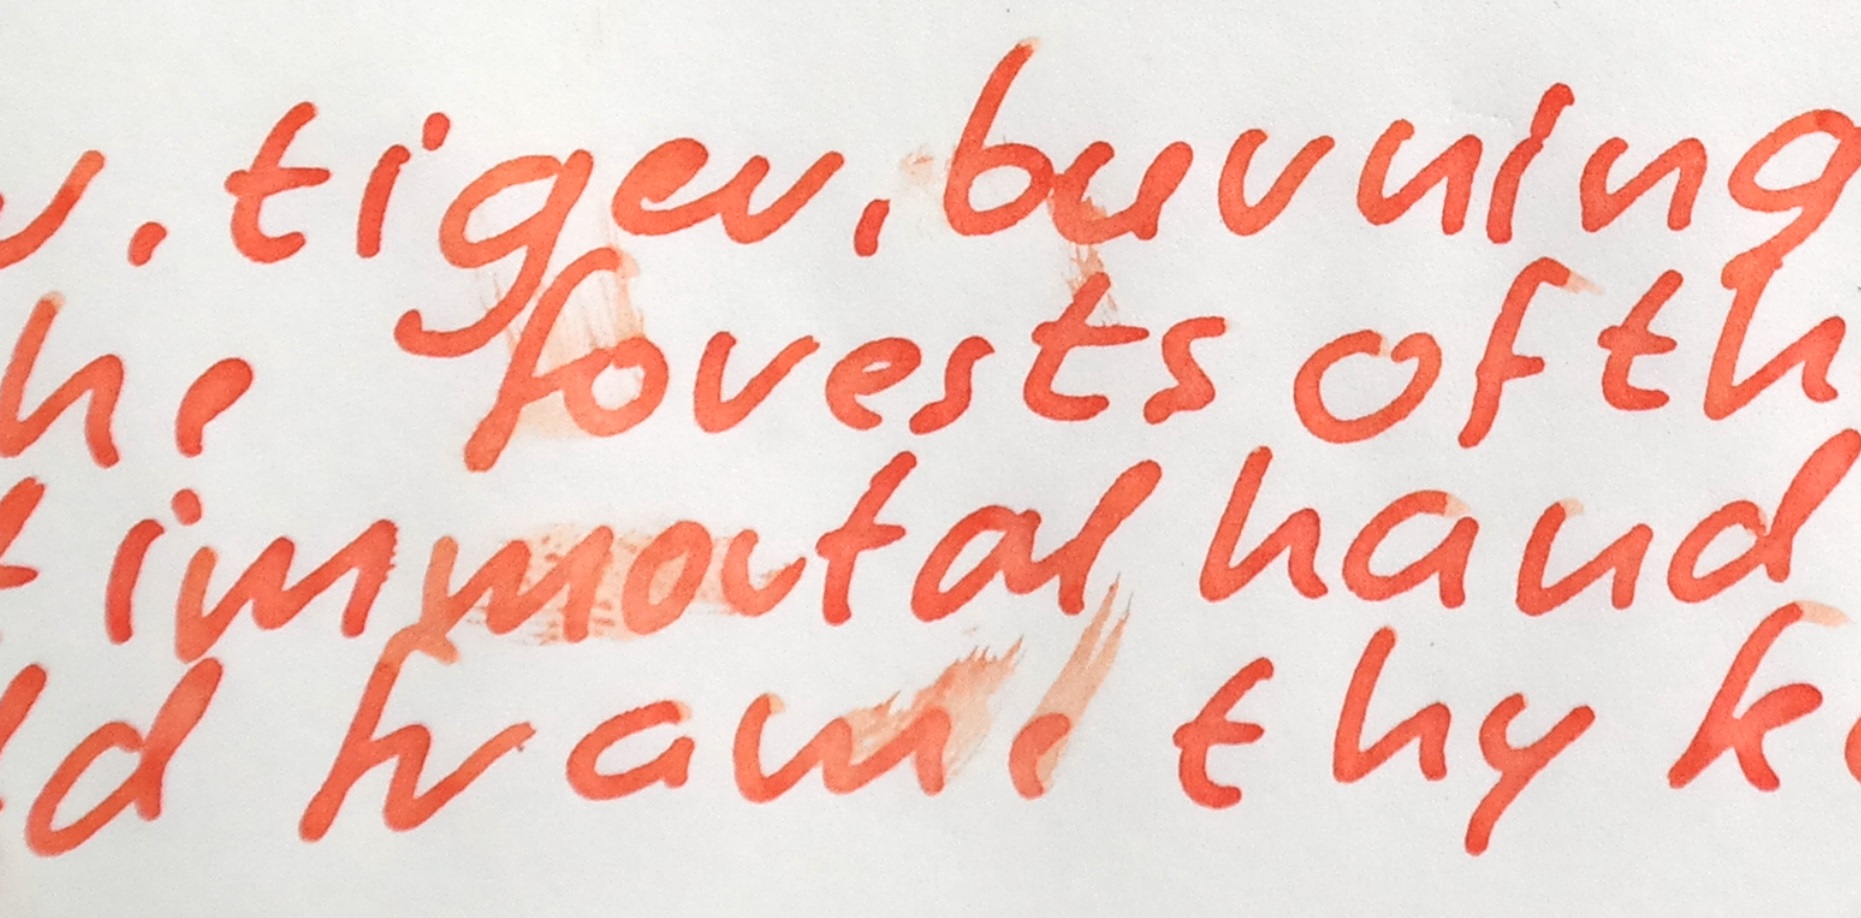 r. tiger, burning
he forests of th
t immortal hand
ld frame thy k